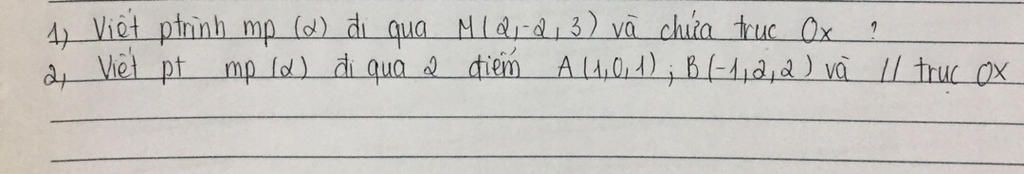 1, Viết ptrình mp (α) đi qua M(2,-2,3) và chứa trục Ox ?
2, Viết pt mp (α) đi qua 2 điểm A(1,0,1); B(-1,2,2) và // trục OX